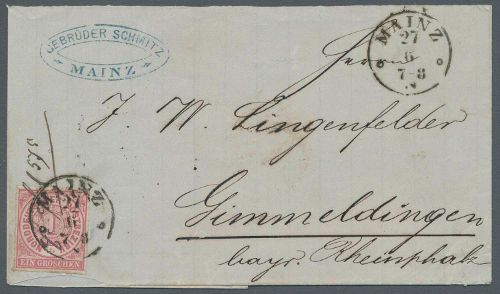 GEBRÜDER SCHMITZ
MAINZ
MAINZ
27
7-8
N
Herrn
J. W. Lingenfelder
Gimmeldingen
bayr. Rheinpfalz
MAINZ
27
NORDDEUTSCHER
EIN GROSCHEN